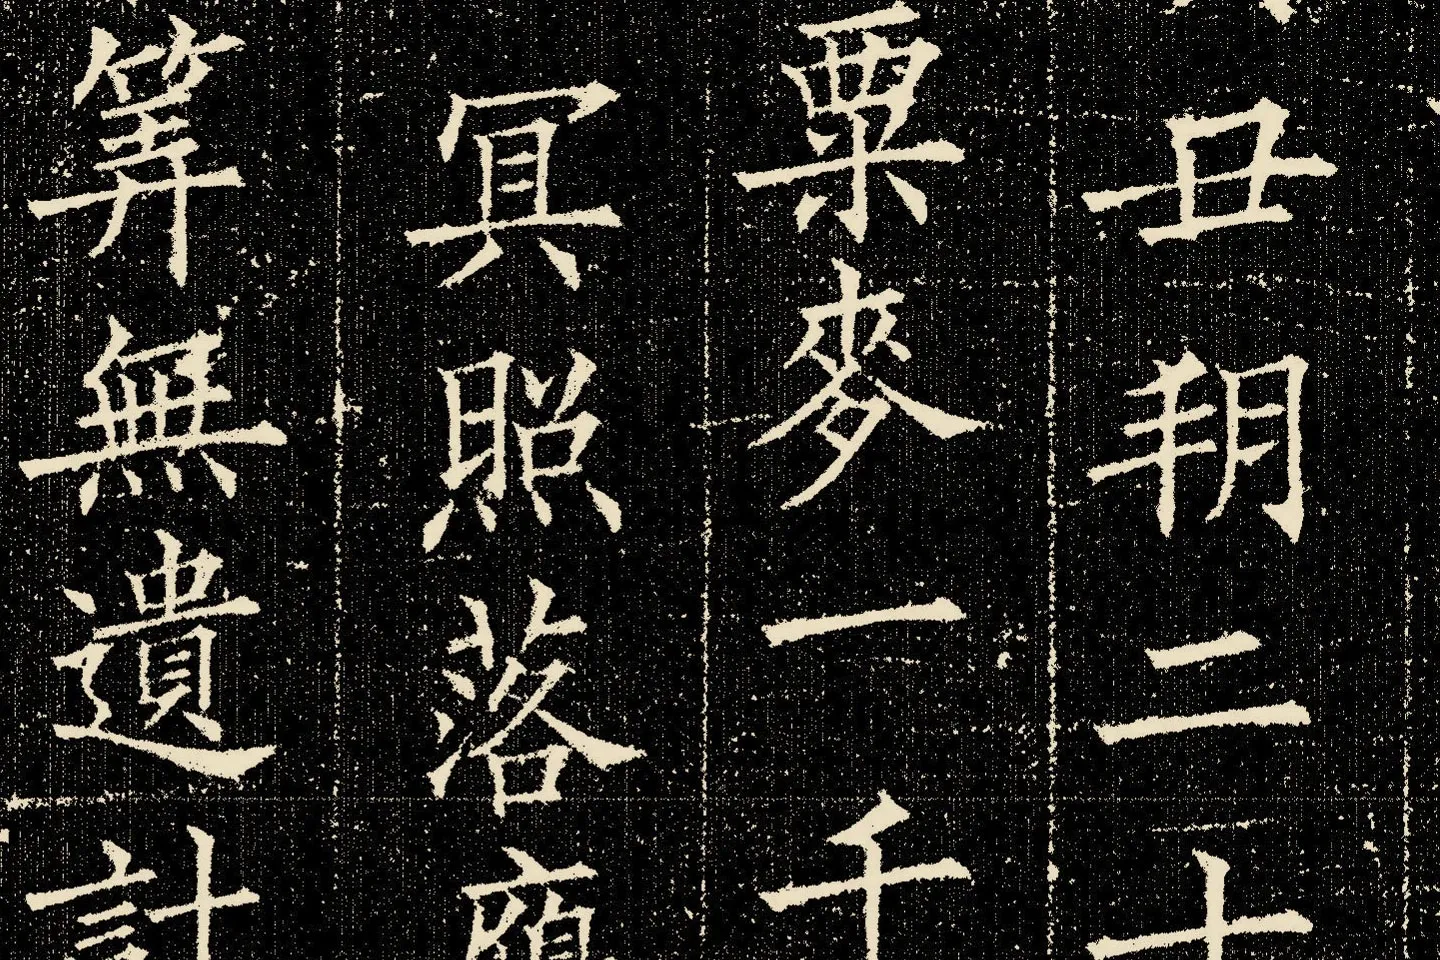 丑朔二十
粟麥一千
冥照落
筭無遺計